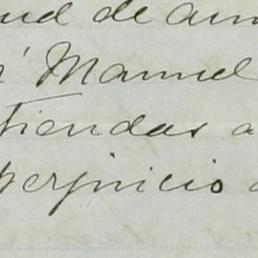 ud de am
Manuel
tiendas a
perjuicio